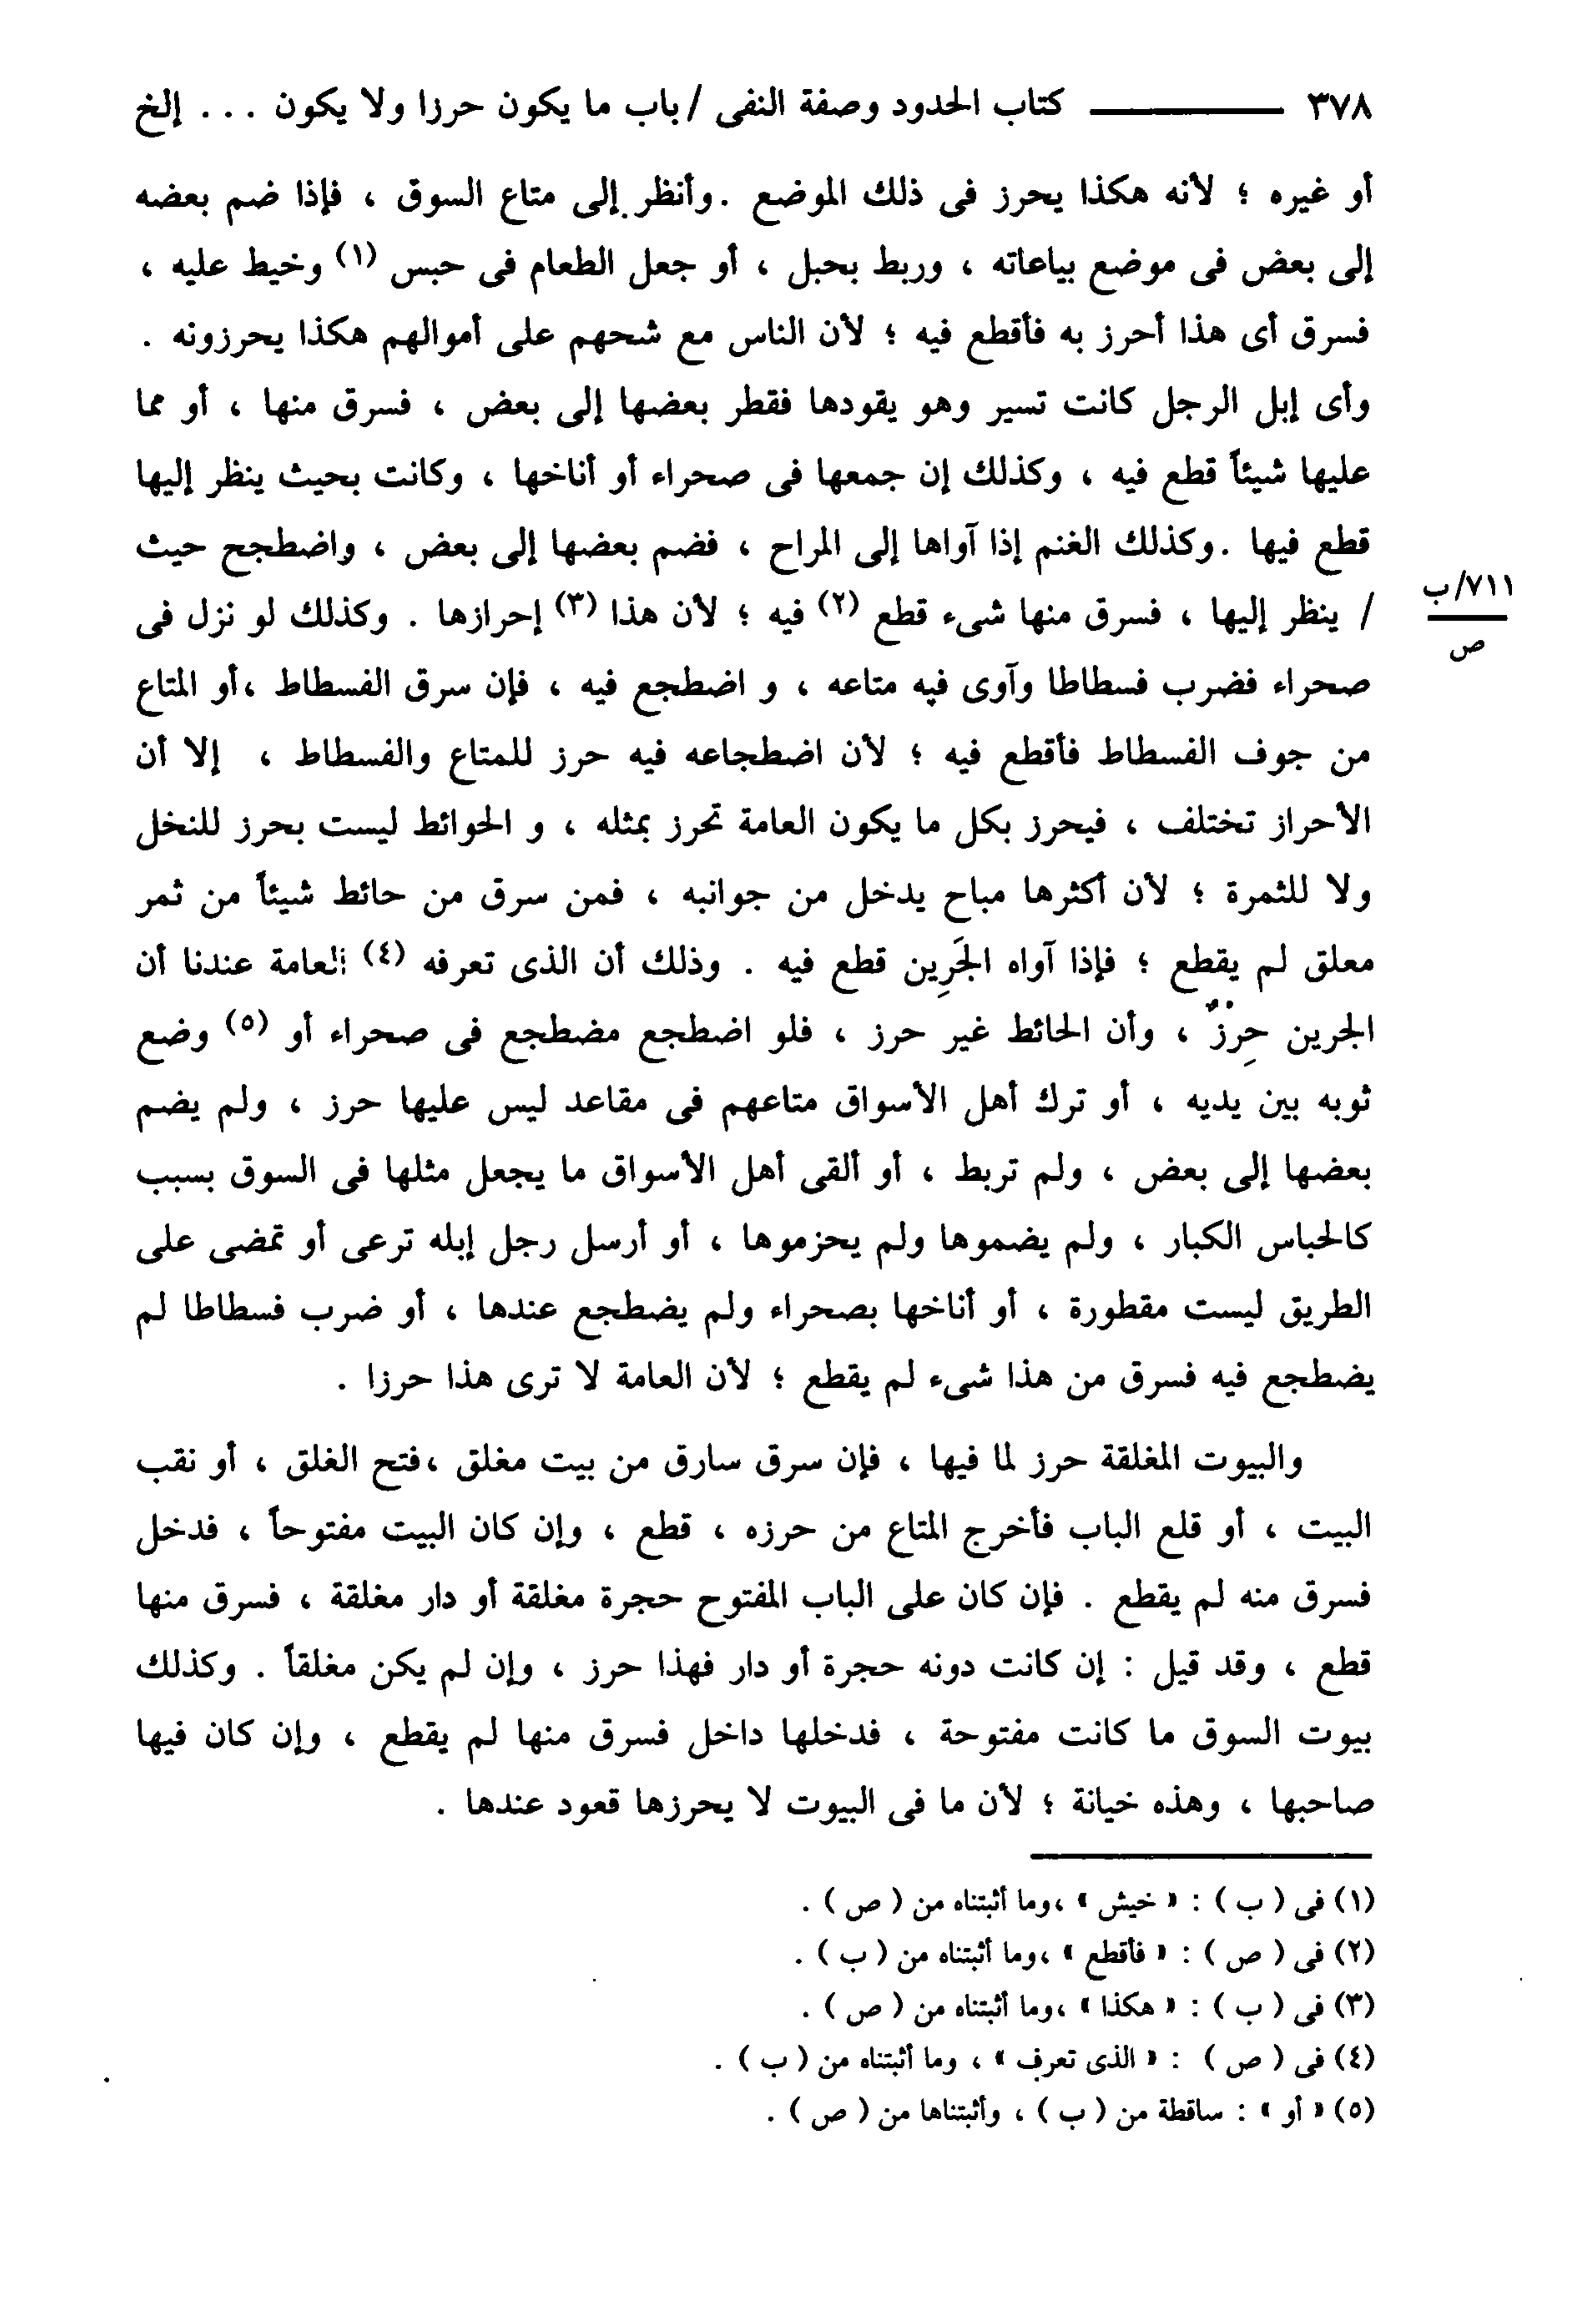 ٣٧٨ ــــــــ كتاب الحدود وصفة النفى / باب ما يكون حرزا ولا يكون . . . إلخ
أو غيره ؛ لأنه هكذا يحرز فى ذلك الموضع . وأنظر إلى متاع السوق ، فإذا ضم بعضه
إلى بعض فى موضع بياعاته ، وربط بحبل ، أو جعل الطعام فى حبس (١) وخيط عليه ،
فسرق أى هذا أحرز به فأقطع فيه ؛ لأن الناس مع شحهم على أموالهم هكذا يحرزونه .
وأى إبل الرجل كانت تسير وهو يقودها فقطر بعضها إلى بعض ، فسرق منها ، أو مما
عليها شيئاً قطع فيه ، وكذلك إن جمعها فى صحراء أو أناخها ، وكانت بحيث ينظر إليها
قطع فيها . وكذلك الغنم إذا آواها إلى المراح ، فضم بعضها إلى بعض ، واضطجح حيث
/ ينظر إليها ، فسرق منها شىء قطع (٢) فيه ؛ لأن هذا (٣) إحرازها . وكذلك لو نزل فى
٧١١/ب
ص
صحراء فضرب فسطاطا وآوى فيه متاعه ، و اضطجع فيه ، فإن سرق الفسطاط ،أو المتاع
من جوف الفسطاط فأقطع فيه ؛ لأن اضطجاعه فيه حرز للمتاع والفسطاط ، إلا أن
الأحراز تختلف ، فيحرز بكل ما يكون العامة تحرز بمثله ، و الحوائط ليست بحرز للنخل
ولا للثمرة ؛ لأن أكثرها مباح يدخل من جوانبه ، فمن سرق من حائط شيئاً من ثمر
معلق لم يقطع ؛ فإذا آواه الجَرِين قطع فيه . وذلك أن الذى تعرفه (٤) العامة عندنا أن
الجرين حِرْزٌ ، وأن الحائط غير حرز ، فلو اضطجع مضطجع فى صحراء أو (٥) وضع
ثوبه بين يديه ، أو ترك أهل الأسواق متاعهم فى مقاعد ليس عليها حرز ، ولم يضم
بعضها إلى بعض ، ولم تربط ، أو ألقى أهل الأسواق ما يجعل مثلها فى السوق بسبب
كالحباس الكبار ، ولم يضموها ولم يحزموها ، أو أرسل رجل إبله ترعى أو تمضى على
الطريق ليست مقطورة ، أو أناخها بصحراء ولم يضطجع عندها ، أو ضرب فسطاطا لم
يضطجع فيه فسرق من هذا شىء لم يقطع ؛ لأن العامة لا ترى هذا حرزا .
والبيوت المغلقة حرز لما فيها ، فإن سرق سارق من بيت مغلق ،فتح الغلق ، أو نقب
البيت ، أو قلع الباب فأخرج المتاع من حرزه ، قطع ، وإن كان البيت مفتوحاً ، فدخل
فسرق منه لم يقطع . فإن كان على الباب المفتوح حجرة مغلقة أو دار مغلقة ، فسرق منها
قطع ، وقد قيل : إن كانت دونه حجرة أو دار فهذا حرز ، وإن لم يكن مغلقاً . وكذلك
بيوت السوق ما كانت مفتوحة ، فدخلها داخل فسرق منها لم يقطع ، وإن كان فيها
صاحبها ، وهذه خيانة ؛ لأن ما فى البيوت لا يحرزها قعود عندها .
(١) فى ( ب ) : « خيش » ،وما أثبتناه من ( ص ) .
(٢) فى ( ص ) : « فأقطع » ،وما أثبتناه من ( ب ) .
(٣) فى ( ب ) : « هكذا » ،وما أثبتناه من ( ص ) .
(٤) فى ( ص ) : « الذى تعرف » ، وما أثبتناه من ( ب ) .
(٥) « أو » : ساقطة من ( ب ) ، وأثبتناها من ( ص ) .